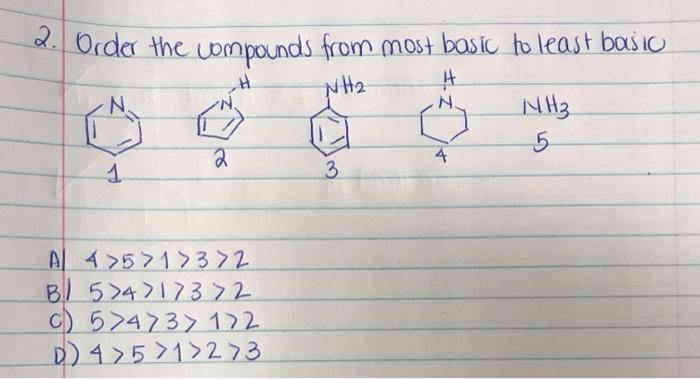 2. Order the compounds from most basic to least basic
N N H NH2 H N NH3
1 2 3 4 5
A) 4>5>1>3>2
B) 5>4>1>3>2
C) 5>4>3>1>2
D) 4>5>1>2>3